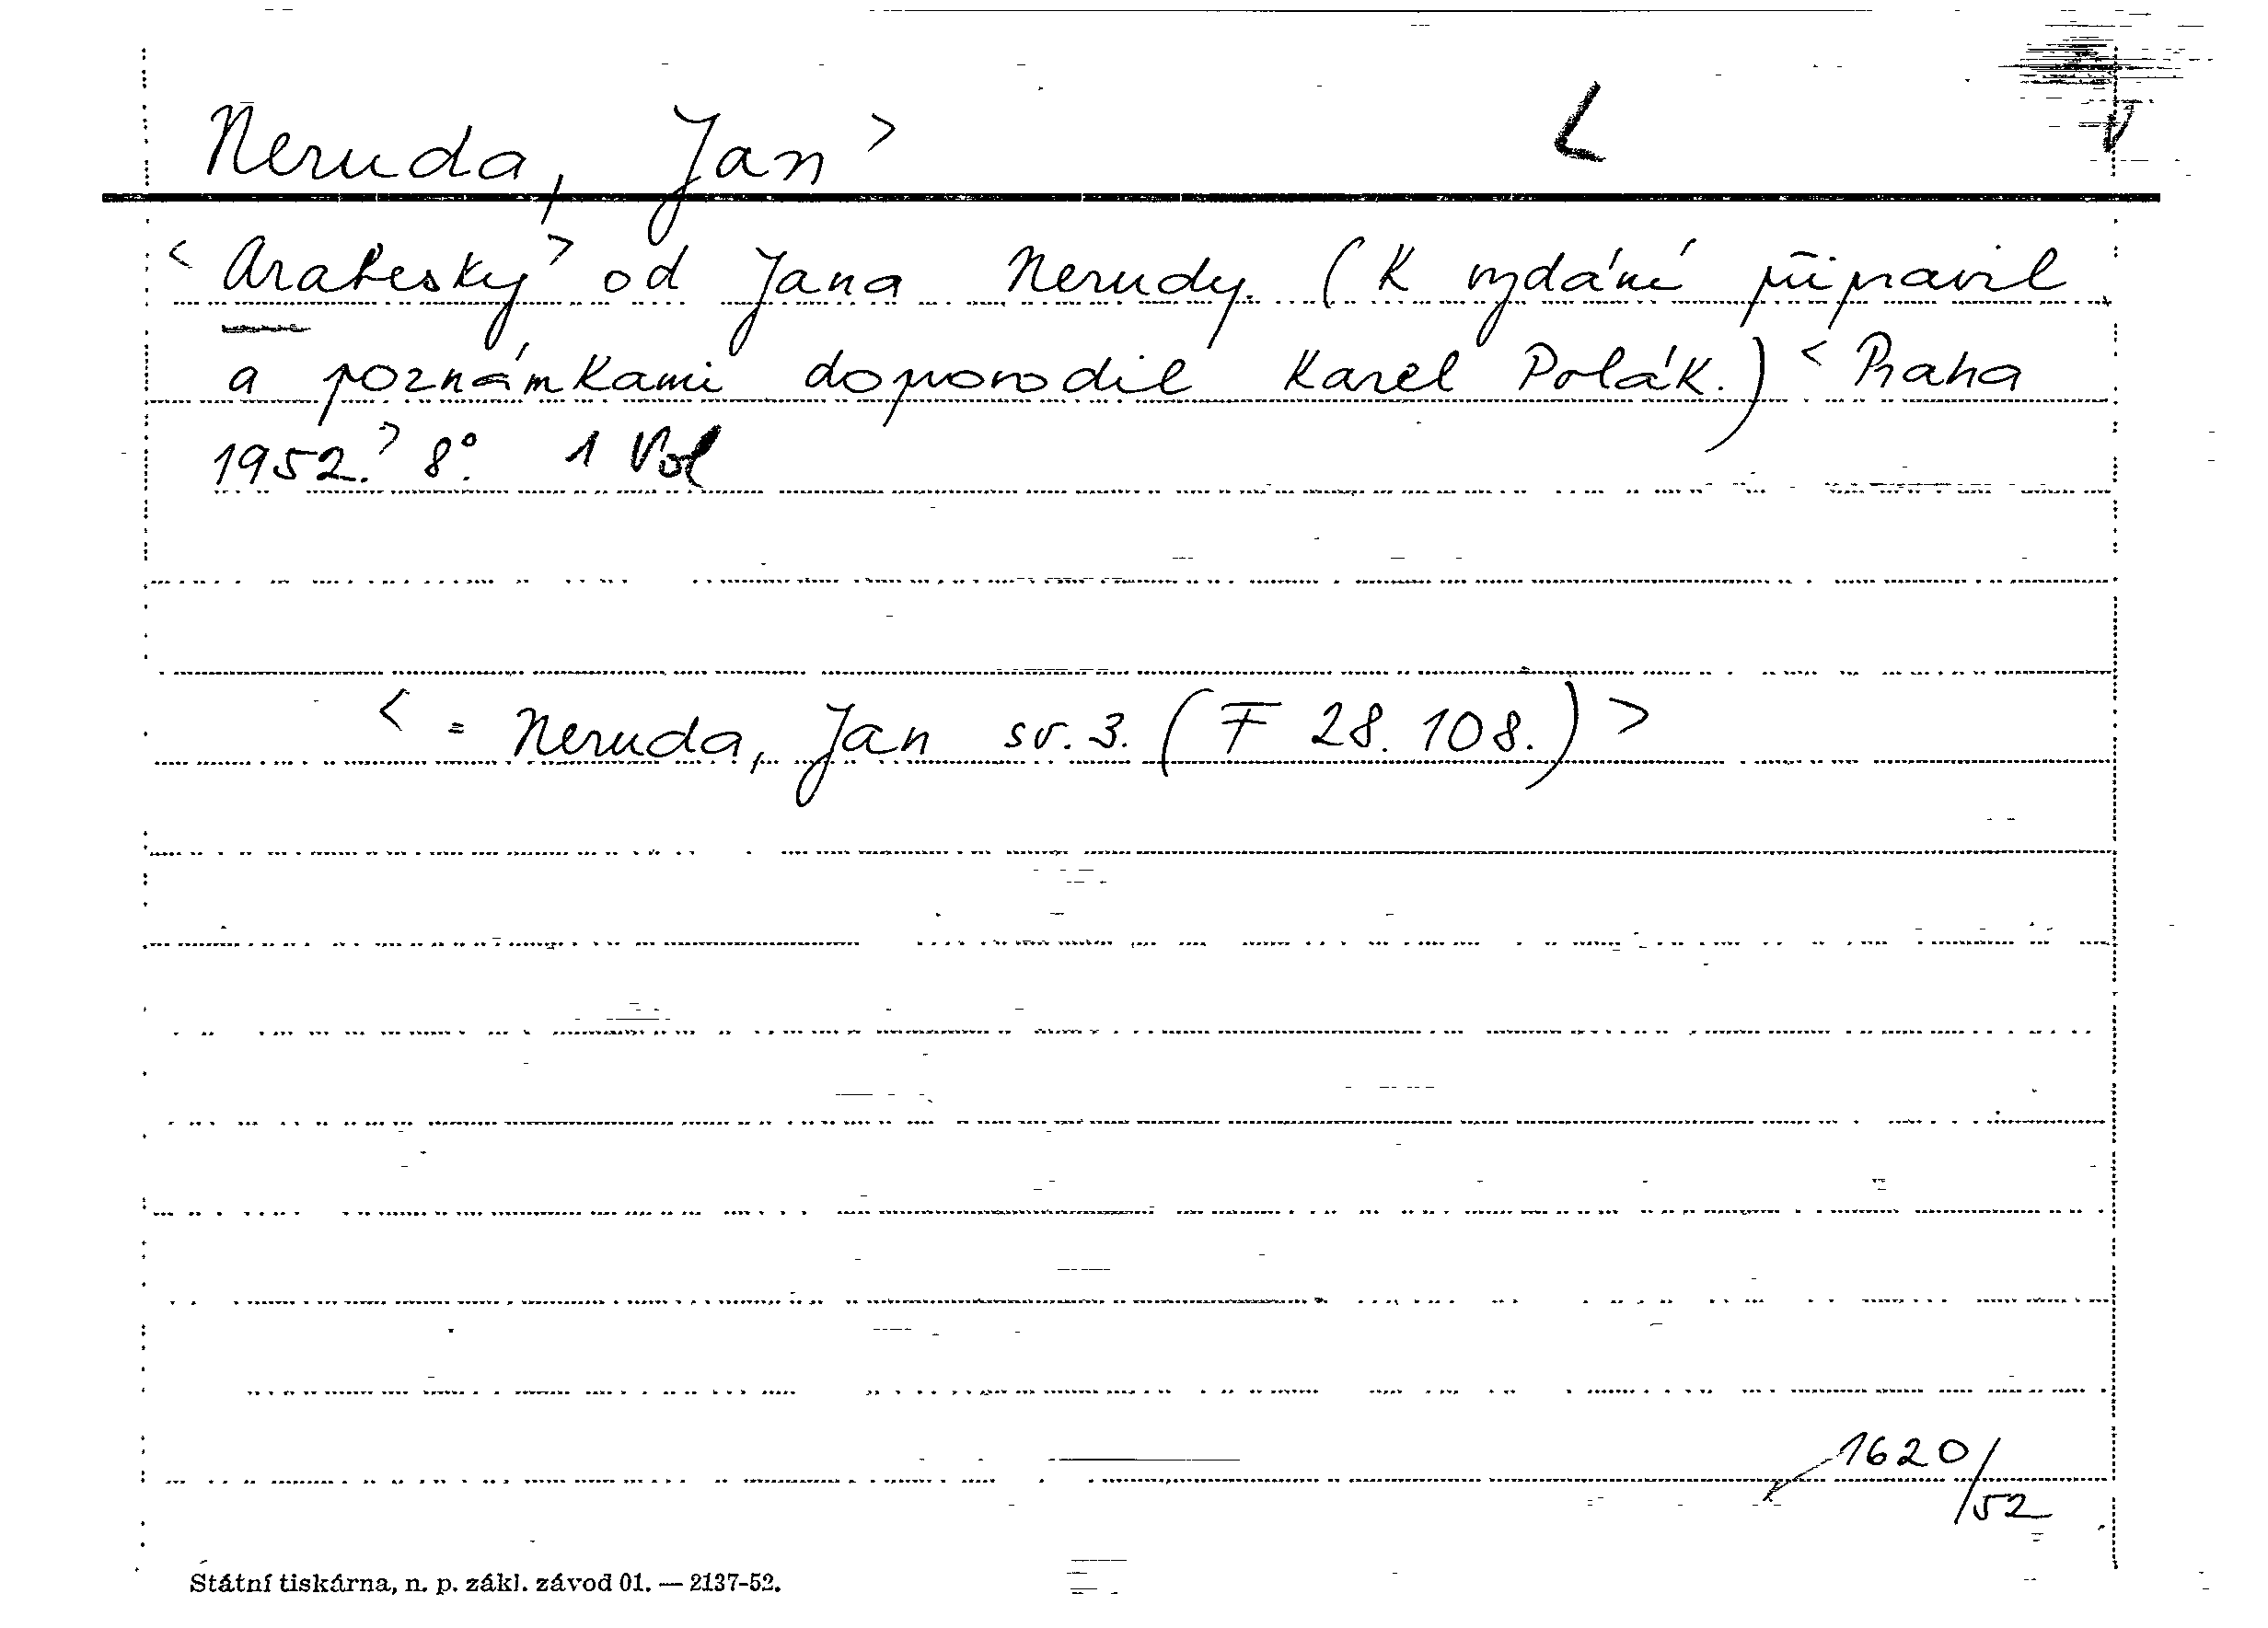 Neruda, Jan > L V
< Arabesky > od Jana Nerudy. (K vydání připravil
a poznámkami doprovodil Karel Polák.) < Praha
1952. > 8°. 1 Vol
< = Neruda, Jan sv. 3. (F 28. 108.) >
1620/52
Státní tiskárna, n. p. zákl. závod 01. — 2137-52.